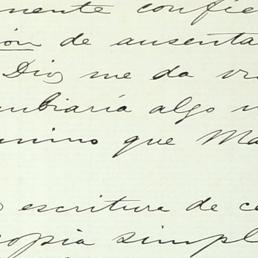 nente confie
ión de ausenta
Dios me da vi
mbiaría algo
mino que Ma
escritura de ce
copia simpl